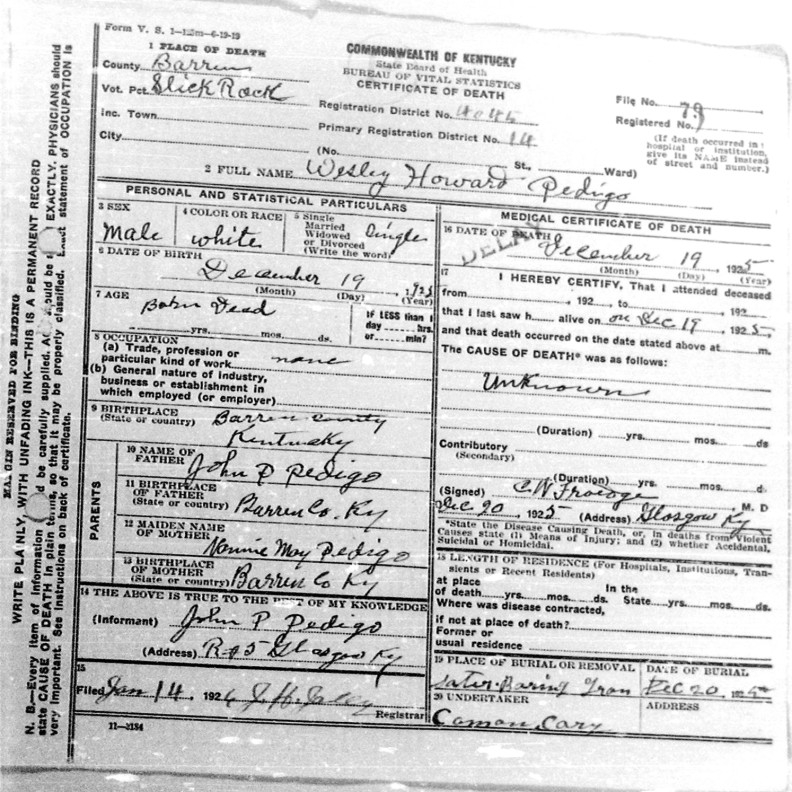 Form V. S. 1-125m-6-19-19
COMMONWEALTH OF KENTUCKY
State Board of Health
BUREAU OF VITAL STATISTICS
CERTIFICATE OF DEATH
1 PLACE OF DEATH
County Barren
Vot. Pct. Slick Rock
Inc. Town
City
Registration District No.
Primary Registration District No. 14
File No.
Registered No. 79
(If death occurred in
hospital or institution,
give its NAME instead
of street and number.)
(No. St., Ward)
2 FULL NAME Wesley Howard Pedigo
PERSONAL AND STATISTICAL PARTICULARS
3 SEX
Male
4 COLOR OR RACE
white
5 Single
Married
Widowed
or Divorced
(Write the word)
Single
6 DATE OF BIRTH
December 19, 1925
(Month) (Day) (Year)
7 AGE
Born Dead
yrs. mos. ds.
If LESS than 1
day hrs.
or min?
8 OCCUPATION
(a) Trade, profession or
particular kind of work none
(b) General nature of industry,
business or establishment in
which employed (or employer)
9 BIRTHPLACE
(State or country)
Barren County
Kentucky
PARENTS
10 NAME OF
FATHER
John P Pedigo
11 BIRTHPLACE
OF FATHER
(State or country) Barren Co. Ky
12 MAIDEN NAME
OF MOTHER
Nannie May Pedigo
13 BIRTHPLACE
OF MOTHER
(State or country) Barren Co Ky
14 THE ABOVE IS TRUE TO THE BEST OF MY KNOWLEDGE
(Informant) John P Pedigo
(Address) R#5 Glasgow Ky
15
Filed Jan 14, 1926
Registrar
11-3184
MEDICAL CERTIFICATE OF DEATH
16 DATE OF DEATH
December 19, 1925
(Month) (Day) (Year)
17
I HEREBY CERTIFY, That I attended deceased
from , 192 , to , 192
that I last saw h alive on Dec 19, 1925,
and that death occurred on the date stated above at m.
The CAUSE OF DEATH* was as follows:
Unknown
(Duration) yrs. mos. ds
Contributory
(Secondary)
(Duration) yrs. mos. d.
(Signed) C W Froedge M. D
Dec 20, 1925 (Address) Glasgow Ky
*State the Disease Causing Death, or, in deaths from Violent
Causes state (1) Means of Injury; and (2) whether Accidental,
Suicidal or Homicidal.
18 LENGTH OF RESIDENCE (For Hospitals, Institutions, Tran-
sients or Recent Residents)
at place
of death yrs. mos. ds.
In the
State yrs. mos. ds.
Where was disease contracted,
if not at place of death?
Former or
usual residence
19 PLACE OF BURIAL OR REMOVAL
DATE OF BURIAL
Dec 20, 1925
20 UNDERTAKER
ADDRESS
MARGIN RESERVED FOR BINDING
WRITE PLAINLY, WITH UNFADING INK—THIS IS A PERMANENT RECORD
N. B.—Every item of information be carefully supplied. should be EXACTLY. PHYSICIANS should
state CAUSE OF DEATH in plain terms, so that it may be properly classified. Exact statement of OCCUPATION is
very important. See instructions on back of certificate.